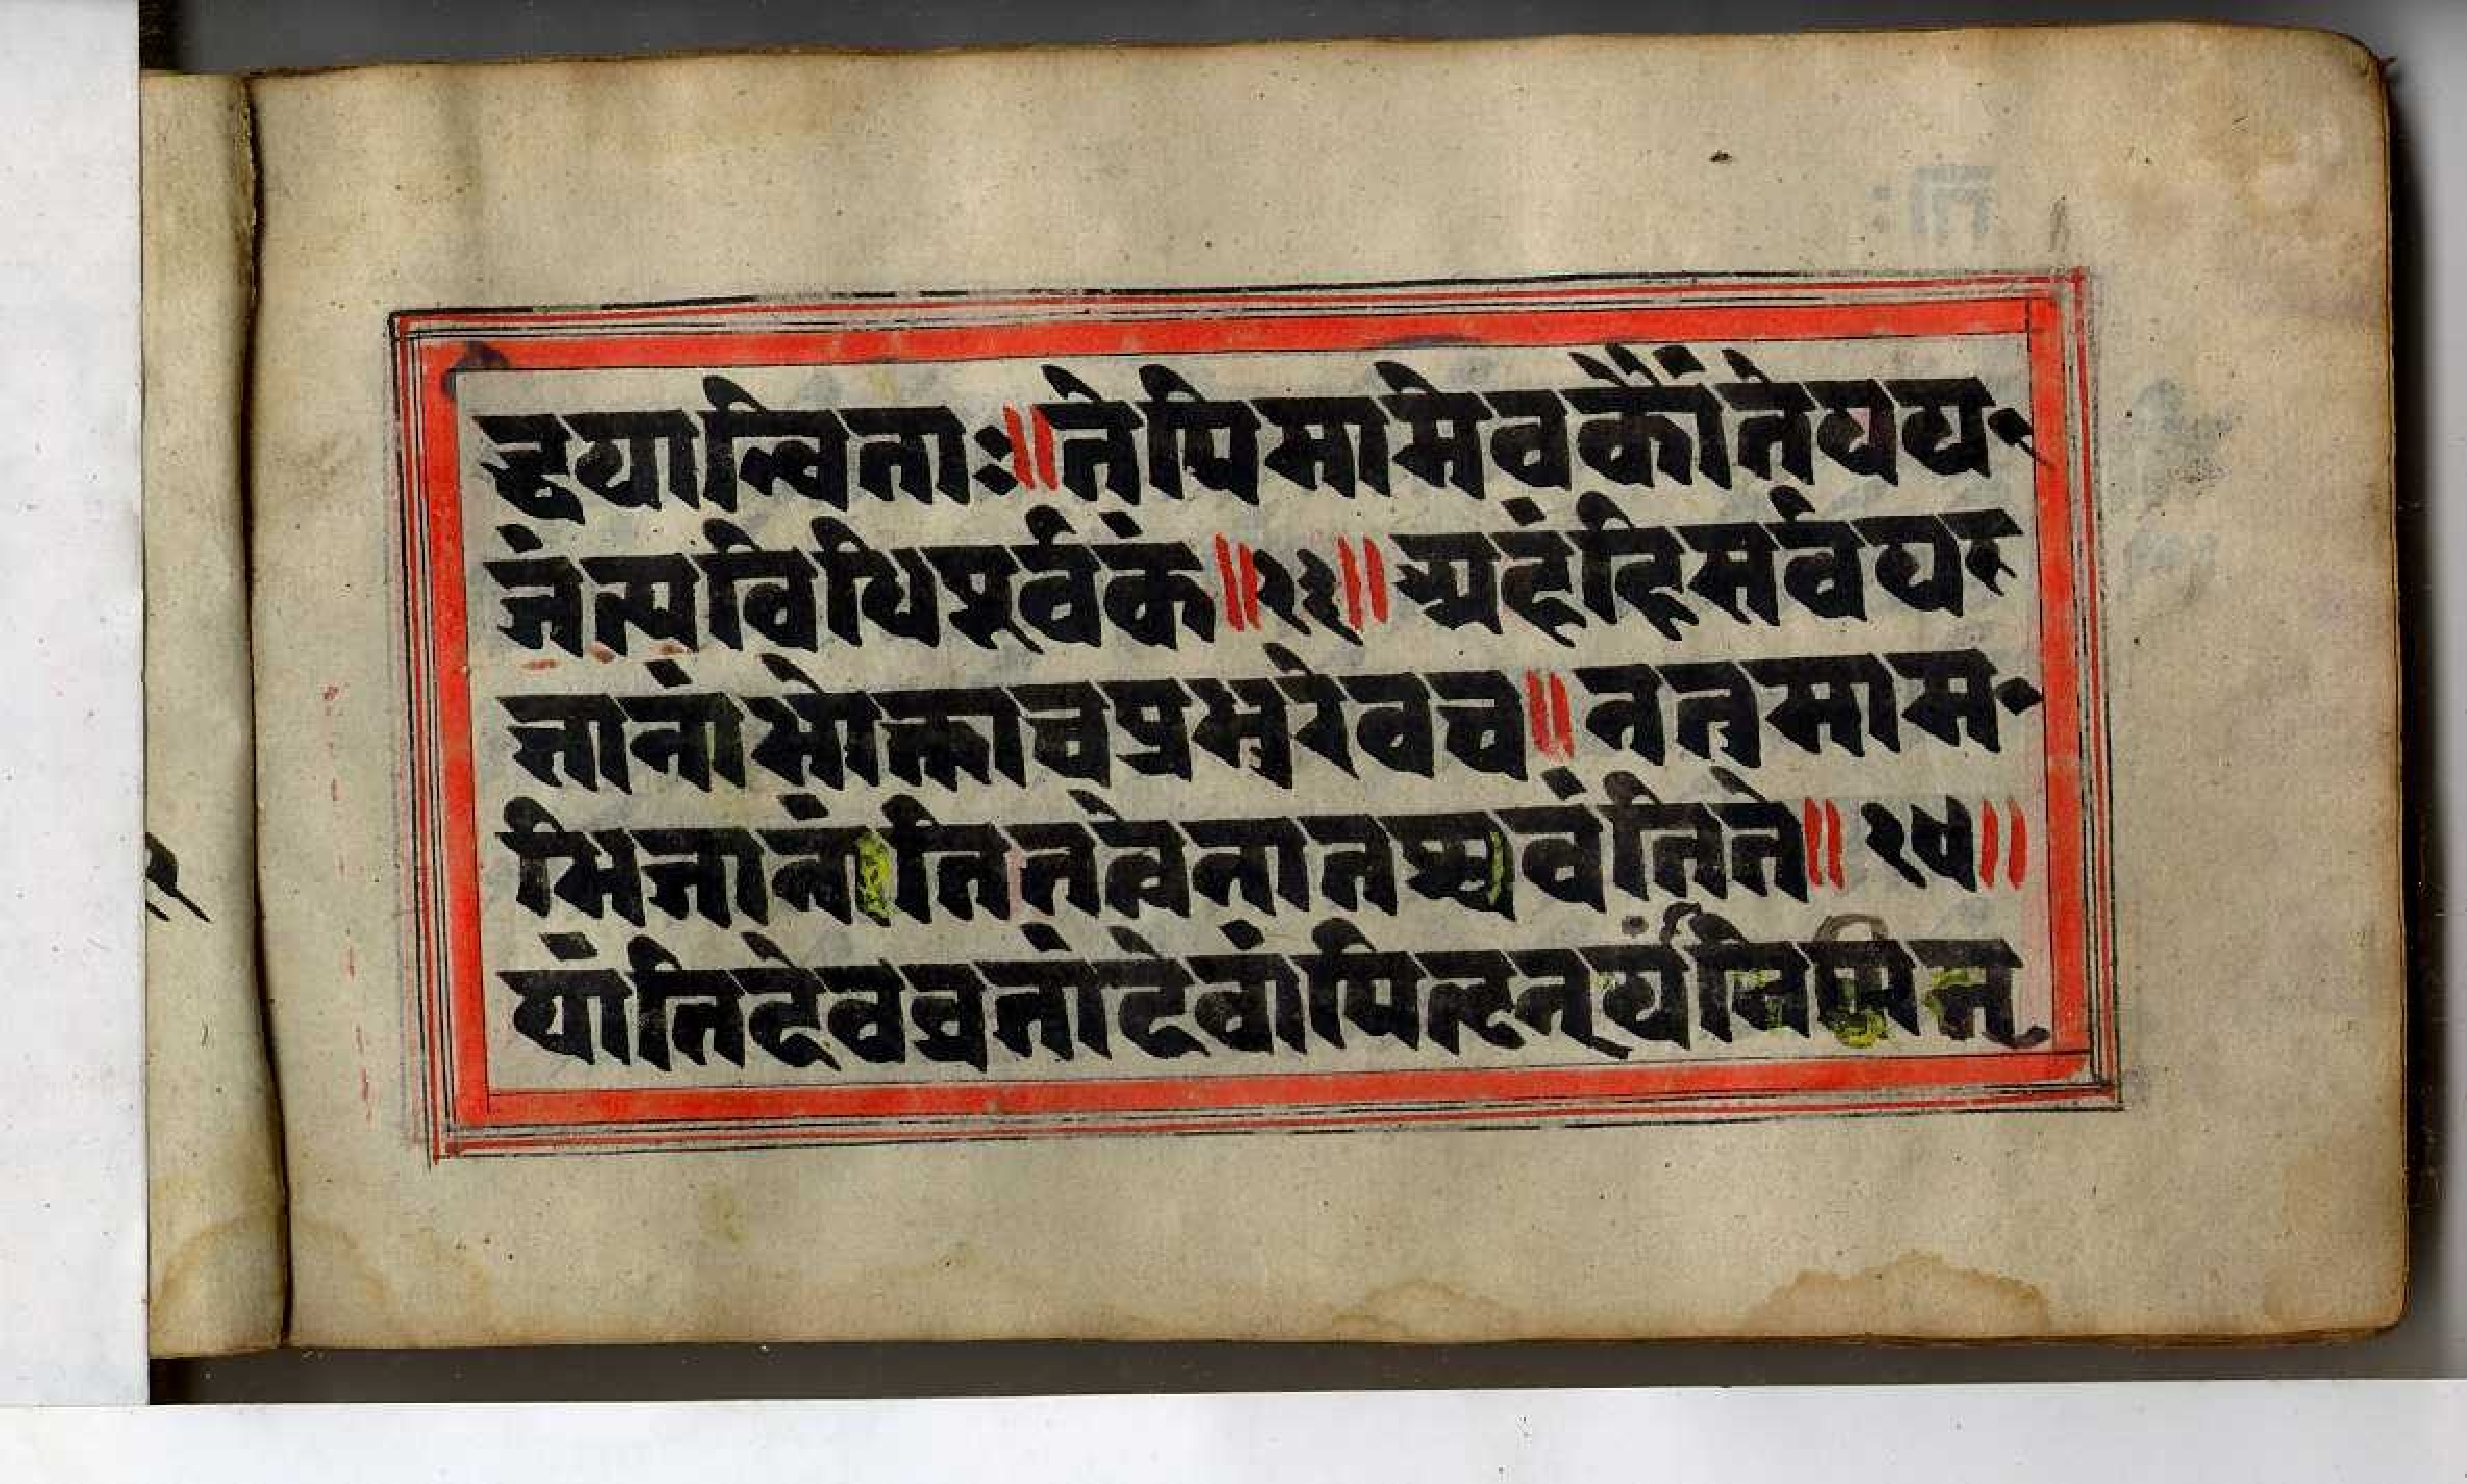 द्धयान्विताः॥तेपिमामेवकौंतेययय
जंत्यविधिपूर्वकं॥२३॥अहंहिसर्वयय
ज्ञानांभोक्ताचप्रभुरेवच॥नतुमाम
भिजानंतितत्वेनातश्चवंतिते॥२४॥
यांतिदेवव्रतादेवांपितृन्यांतिपितृ